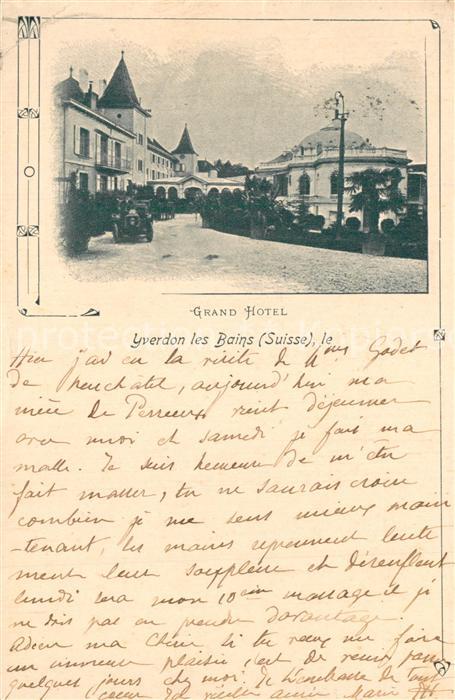 GRAND HOTEL
Yverdon les Bains (Suisse), le
Hier j'ai eu la visite de Godet
de neuchâtel, aujourd'hui ma
nièce de vient déjeuner
avec moi et samedi je fais ma
malle. Je suis heureuse de m'être
fait masser, tu ne saurais croire
combien je me sens mieux main
-tenant, les mains reprennent lente
ment leur souplesse et désenflent
lundi sera mon 10 massage et je
ne dois pas en prendre davantage.
Adieu ma si tu veux me faire
un immense plaisir, c'est de venir
quelques jours chez moi. Je t'embrasse de tout
coeur ta vieille amie